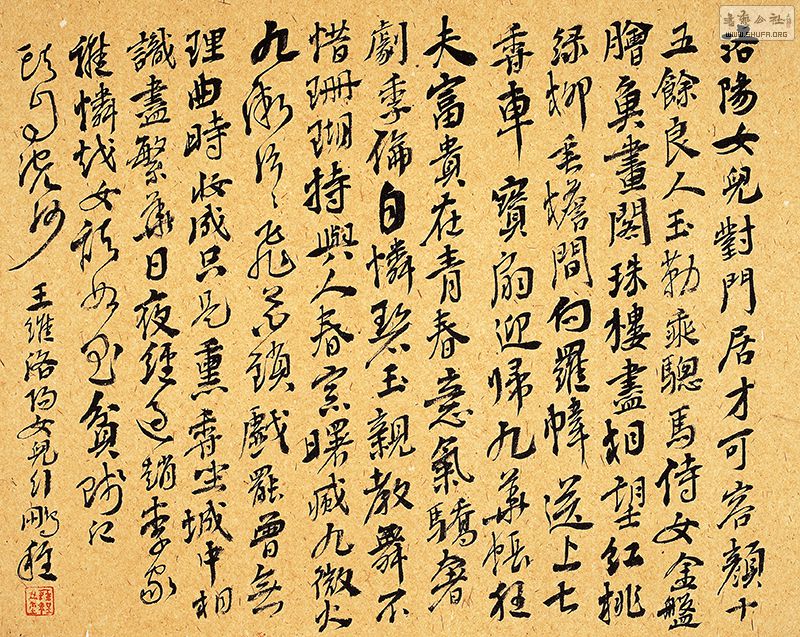 洛陽女兒對門居才可容顏十
五餘良人玉勒乘驄馬侍女金盤
膾魚畫閣珠樓盡相望紅桃
綠柳垂簷間向羅幃送上七
香車寶扇迎歸九華帳狂
夫富貴在青春意氣驕奢
劇季倫自憐碧玉親教舞不
惜珊瑚特與人春窗曙滅九微火
九微片片飛花鎖戲罷曾無
理曲時妝成只是熏香坐城中相
識盡繁華日夜經過趙李家
誰憐越女顏如玉貧賤江
頭自浣沙
王維洛陽女兒行鵬程
書藝公社
WWW.SHUFA.ORG